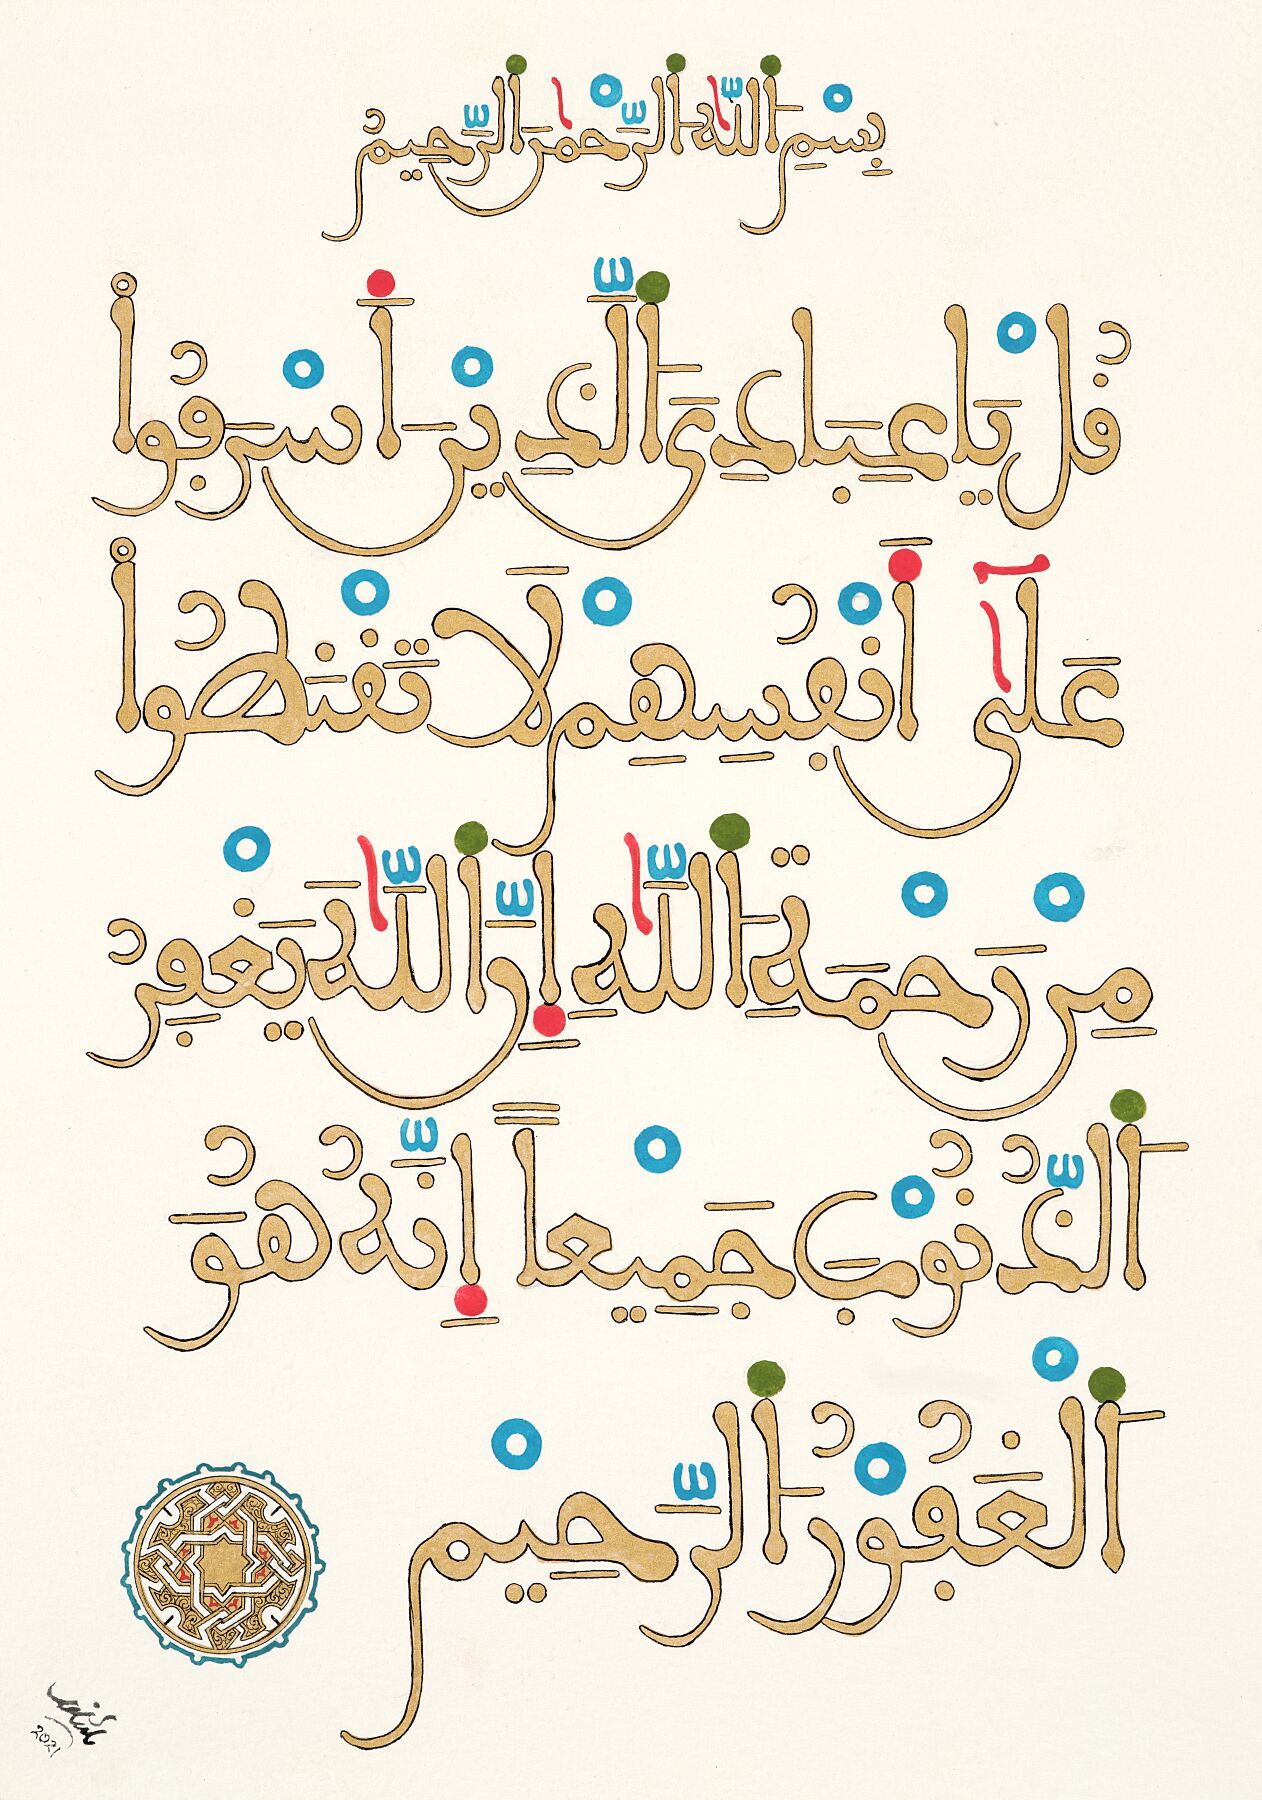 بِسْمِ اللَّهِ الرَّحْمَٰنِ الرَّحِيمِ
قُلْ يَاعِبَادِيَ الَّذِينَ أَسْرَفُواْ
عَلَىٰٓ أَنْفُسِهِمْ لَا تَقْنَطُواْ
مِنْ رَحْمَةِ اللَّهِ إِنَّ اللَّهَ يَغْفِرُ
الذُّنُوبَ جَمِيعاً إِنَّهُ هُوَ
الْغَفُورُ الرَّحِيمْ
2021